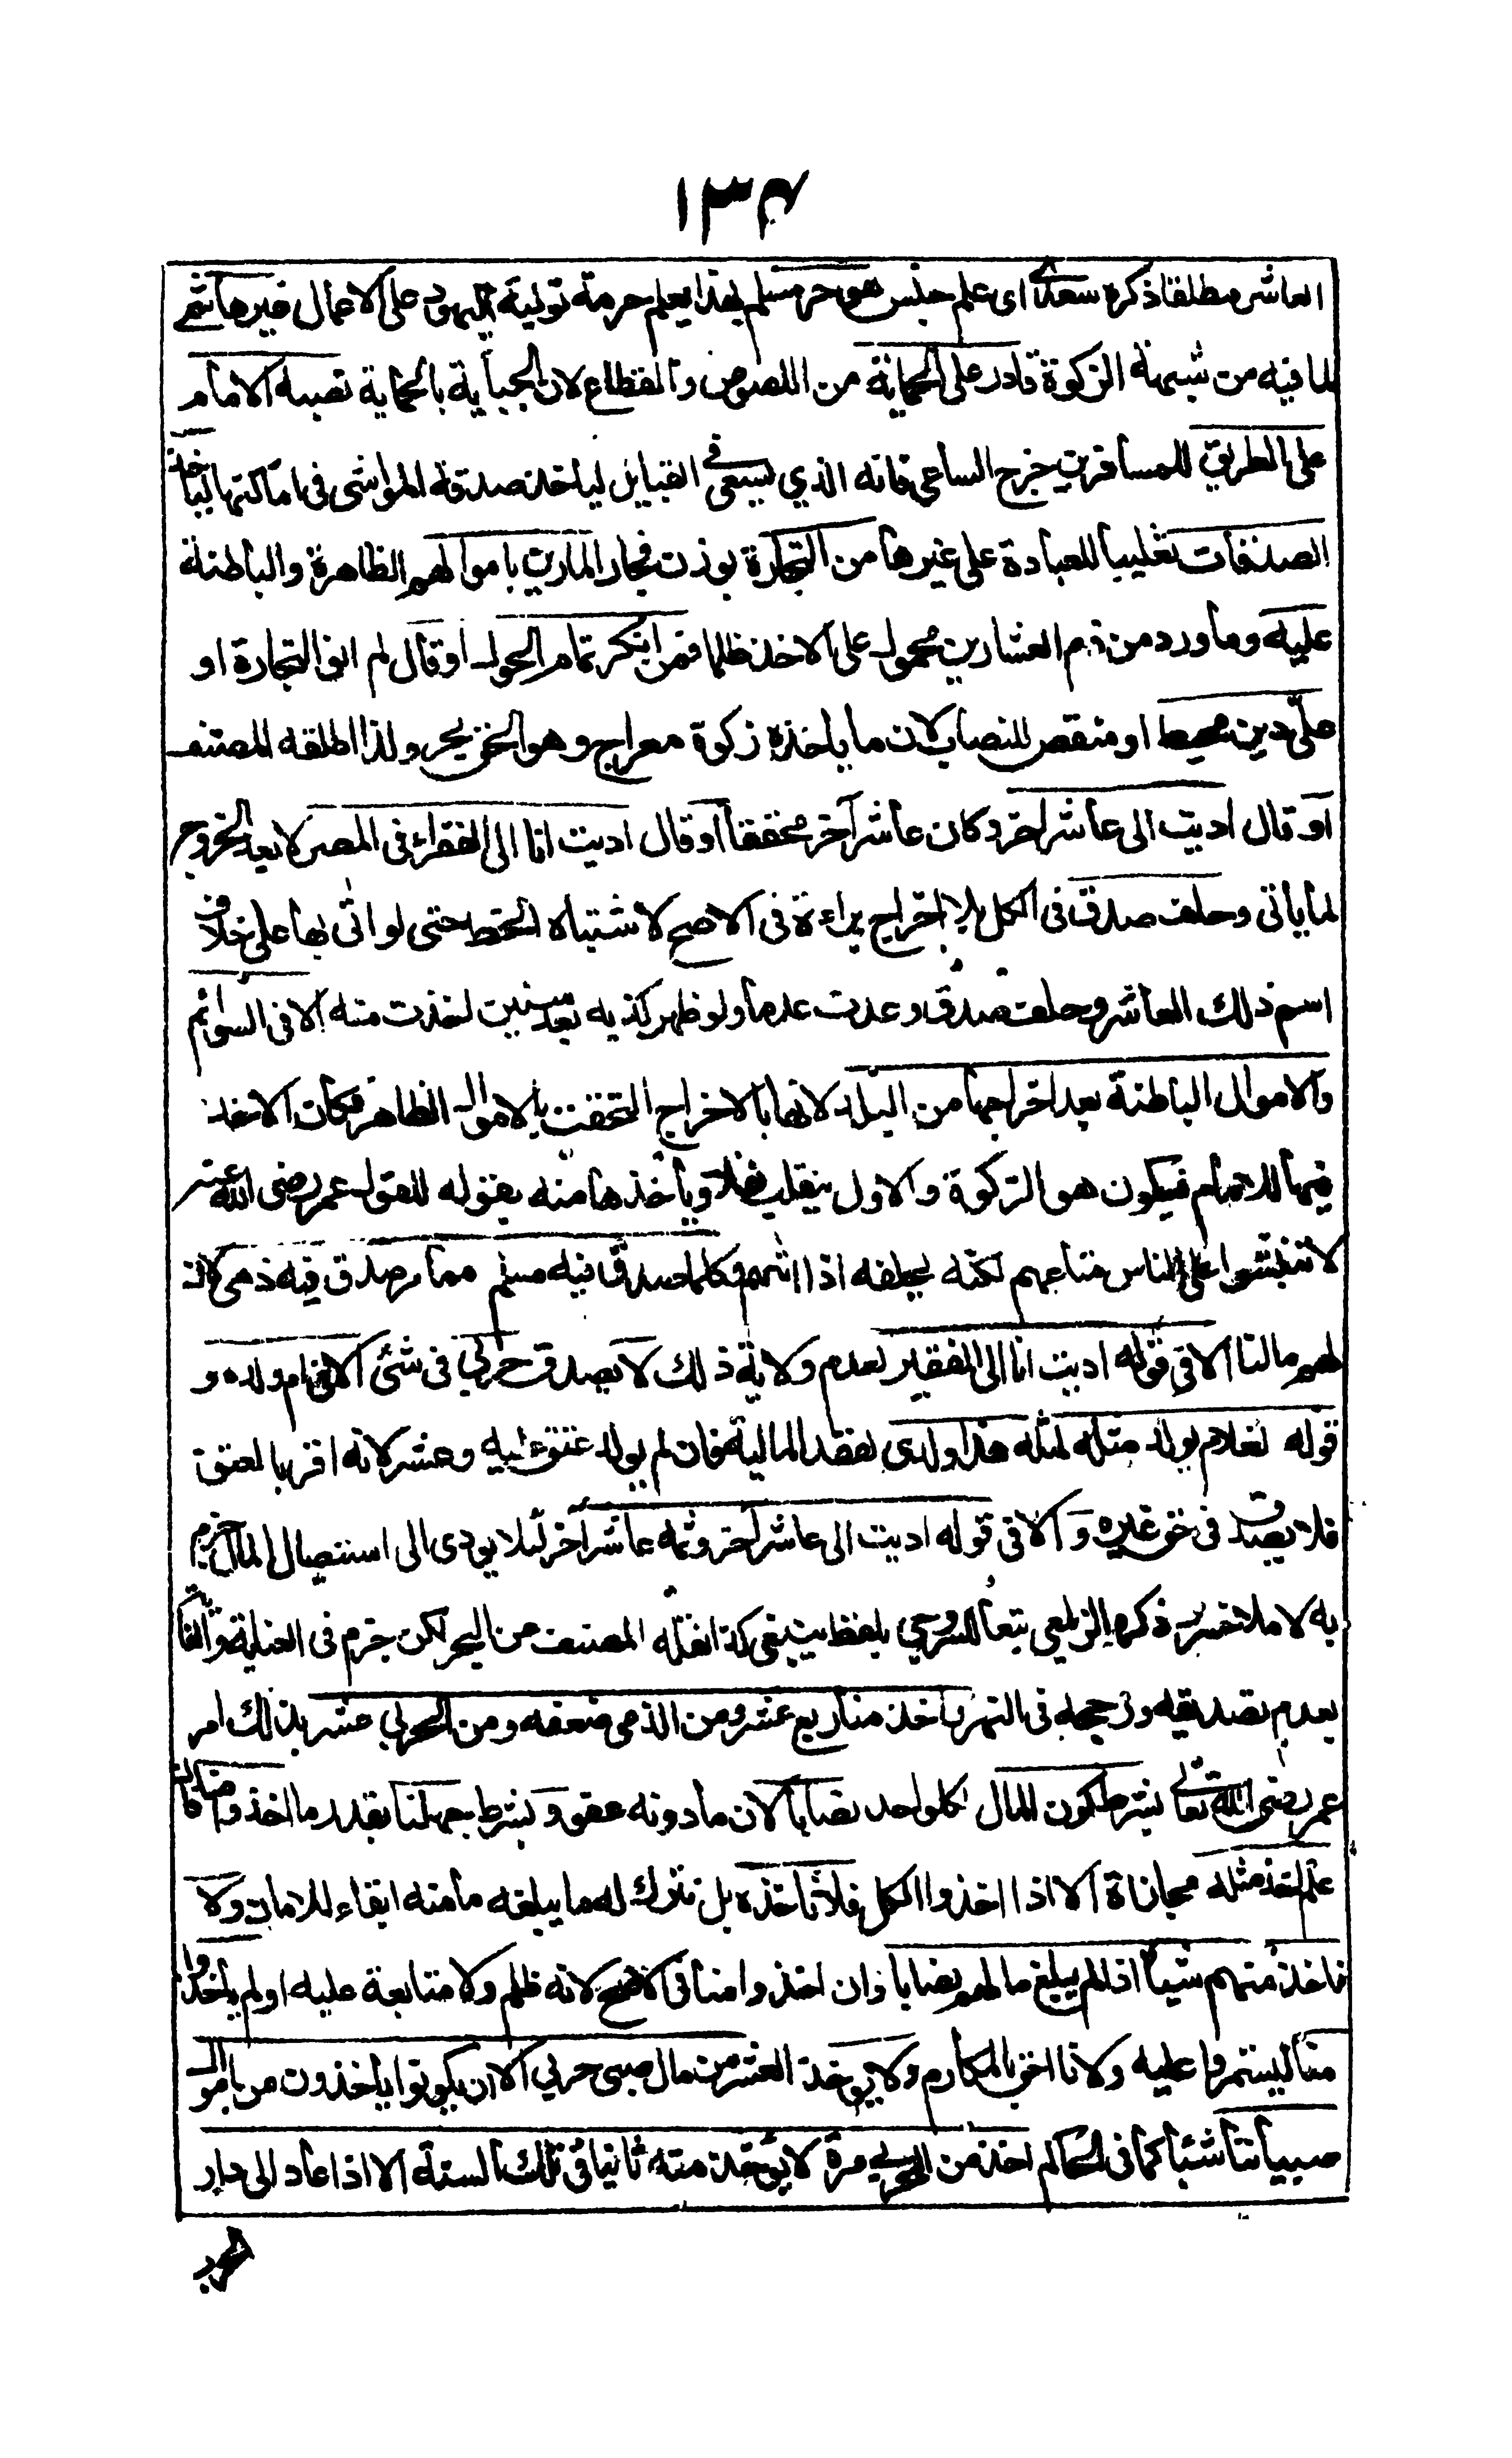 ١٣٤
العاشر مطلقا ذكره سعدي اي علم جنس هو حر مسلم بهذا يعلم حرمة تولية اليهود على الاعمال غير هاشمي
لما فيه من شبهة الزكوة قادر على الحماية من اللصوص والقطاع لان الجباية بالحماية نصبه الامام
على الطريق للمسافرين خرج الساعي فانه الذي يسعى في القبايل لياخذ صدقة المواشى في اماكنها لياخذ
الصدقات تغليبا للعبادة على غيرها من التجارة بوزن فجار المارين باموالهم الظاهرة والباطنة
عليه وما ورد من ذم العشارين محمول على الاخذ ظلما فمن انكر تمام الحول او قال لم انو التجارة او
علىّ دين محيط او منقص للنصاب لان ما ياخذه زكوة معراج وهو الحق بحر ولذا اطلقه المصنف
او قال اديت الى عاشر اخر وكان عاشر آخر محققا او قال اديت انا الى الفقراء في المصر لا بعد الخروج
لما ياتي وحلف صدق في الكل بلا اخراج براءة في الاصح لاشتباه الخط حتى لو اتى بها على خلاف
اسم ذلك العاشر وحلف صدق وعدت عدما ولو ظهر كذبه بعد سنين اخذت منه الا في السوائم
والاموال الباطنة بعد اخراجها من البلد لانها بالاخراج التحقت بالاموال الظاهر فكان الاخذ
فيها للامام فيكون هو الزكوة والاول ينقلب نفلا وياخذها منه بقوله لقول عمر رضى الله عنه
لا تفتشوا على الناس متاعهم لكنه يحلفه اذا اتهم وكلما صدق فيه مسلم مما مر صدق فيه ذمى لان
لهم ما لنا الا في قوله اديت انا الى الفقير لعدم ولاية ذلك لا يصدق حربي في شئ الا في ام ولده و
قوله لغلام يولد مثله لمثله هذا ولدى لفقد المالية فان لم يولد عتق عليه وعشر لانه اقر بالعتق
فلا يصدق في حق غيره و الا في قوله اديت الى عاشر اخر وثمه عاشر آخر لئلا يودى الى استيصال المال جزم
به لا ملاخسرو ذكره الزيلعي تبعا للسروجي بلفظ ينبغى كذا نقله المصنف من البحر لكن جزم في العناية والغاية
بعدم تصديقه ورجحه في النهر ياخذ منا ربع عشر ومن الذمى ضعفه ومن الحربي عشر بذلك امر
عمر رضى الله تعالى بشرط كون المال لكل واحد نصابا لان ما دونه عفو و بشرط جهلنا بقدر ما اخذوا منا فان
علم اخذ مثله مجازاة الا اذا اخذوا الكل فلا ناخذه بل نترك له ما يبلغه مامنه ابقاء للامان ولا
ناخذ منهم شيئا اذا لم يبلغ مالهم نصابا وان اخذوا منا في الاصح لانه ظلم ولا متابعة عليه او لم ياخذوا
منا ليستمروا عليه ولانا احق بالمكارم ولا يوخذ العشر من مال صبى حربي الا ان يكونوا ياخذون من باموال
صبياننا شيئا كما في الحاكم اخذ من الحربي مرة لا يوخذ منه ثانيا في تلك السنة الا اذا عاد الى دار
الحرب